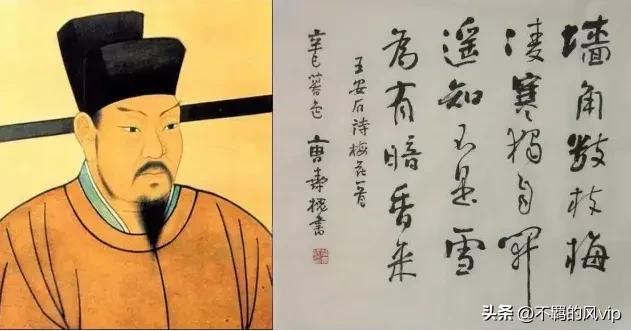 墙角数枝梅
凌寒独自開
遥知不是雪
為有暗香来
王安石诗梅花一首
辛巳 書
头条 @不羁的风vip